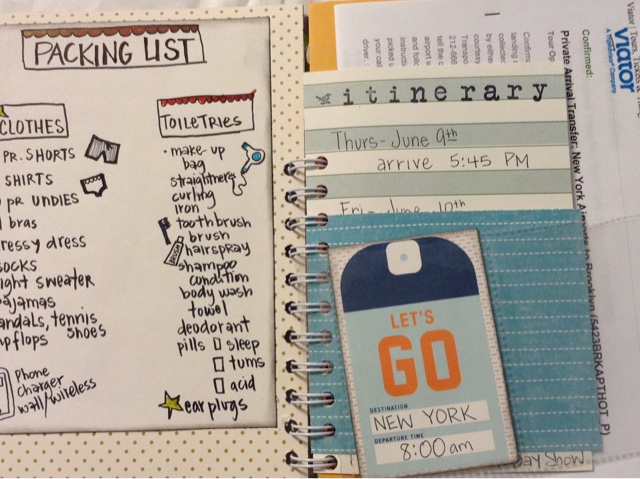 PACKING LIST
CLOTHES
PR. SHORTS
SHIRTS
PR UNDIES
bras
ressy dress
socks
ight sweater
ajamas
andals, tennis
pflops shoes
Phone
Charger
wall/wireless
TOILETRIES
• make-up
bag
straightner
curling
iron
toothbrush
brush
hairspray
shampoo
condition
body wash
towel
deodorant
pills sleep
tums
acid
ear plugs
itinerary
Thurs - June 9th
arrive 5:45 PM
Fri - June 10th
LET'S
GO
DESTINATION
NEW YORK
DEPARTURE TIME
8:00 am
Day Show
viator
A TripAdvisor Company
Confirmed:
Private Arrival Transfer: New York Airports to Brooklyn (5423BRKAPTHOT_P)
Tour Op